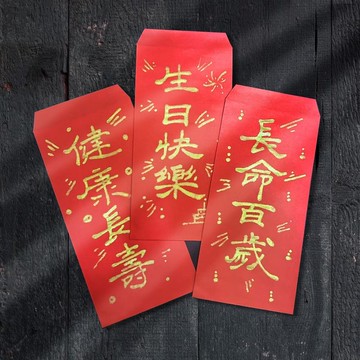 健康長壽
生日快樂
長命百歲